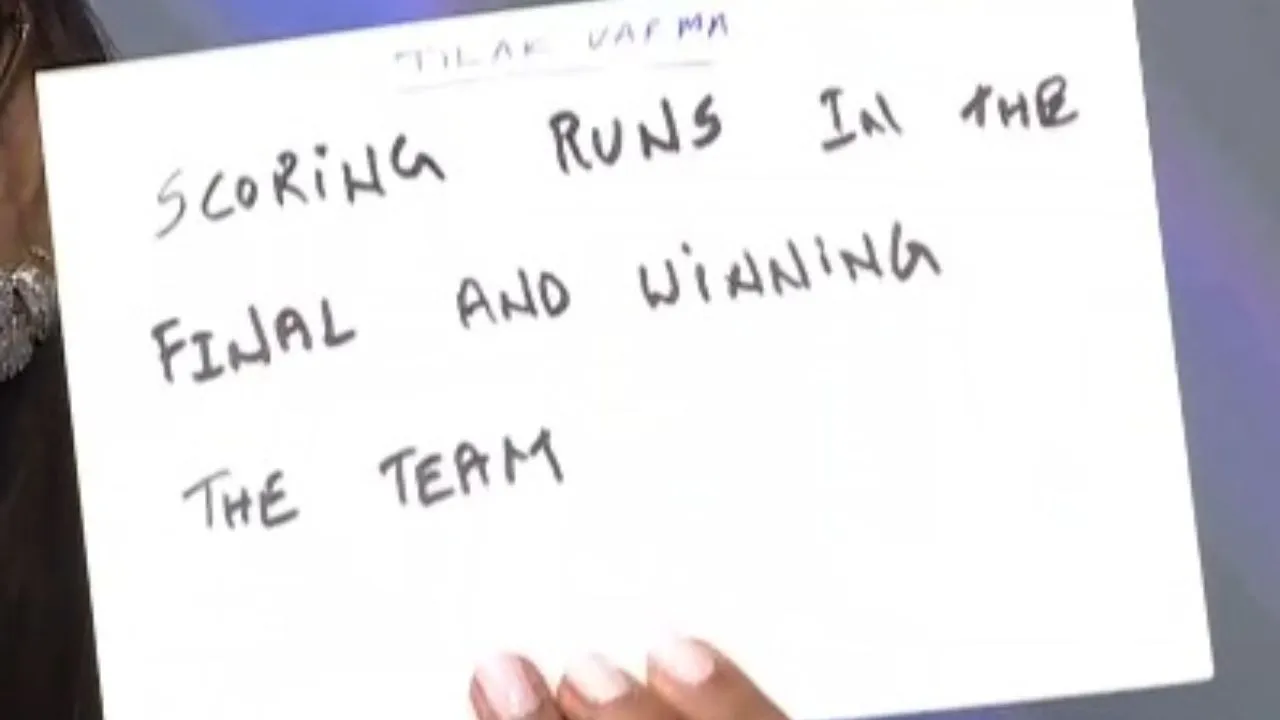 TILAK VARMA
SCORiNG RUNS IN THE
FINAL AND WiNNiNG
THE TEAM